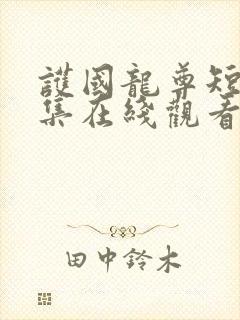 護國龍尊短
集在綫觀看
田中鈴木